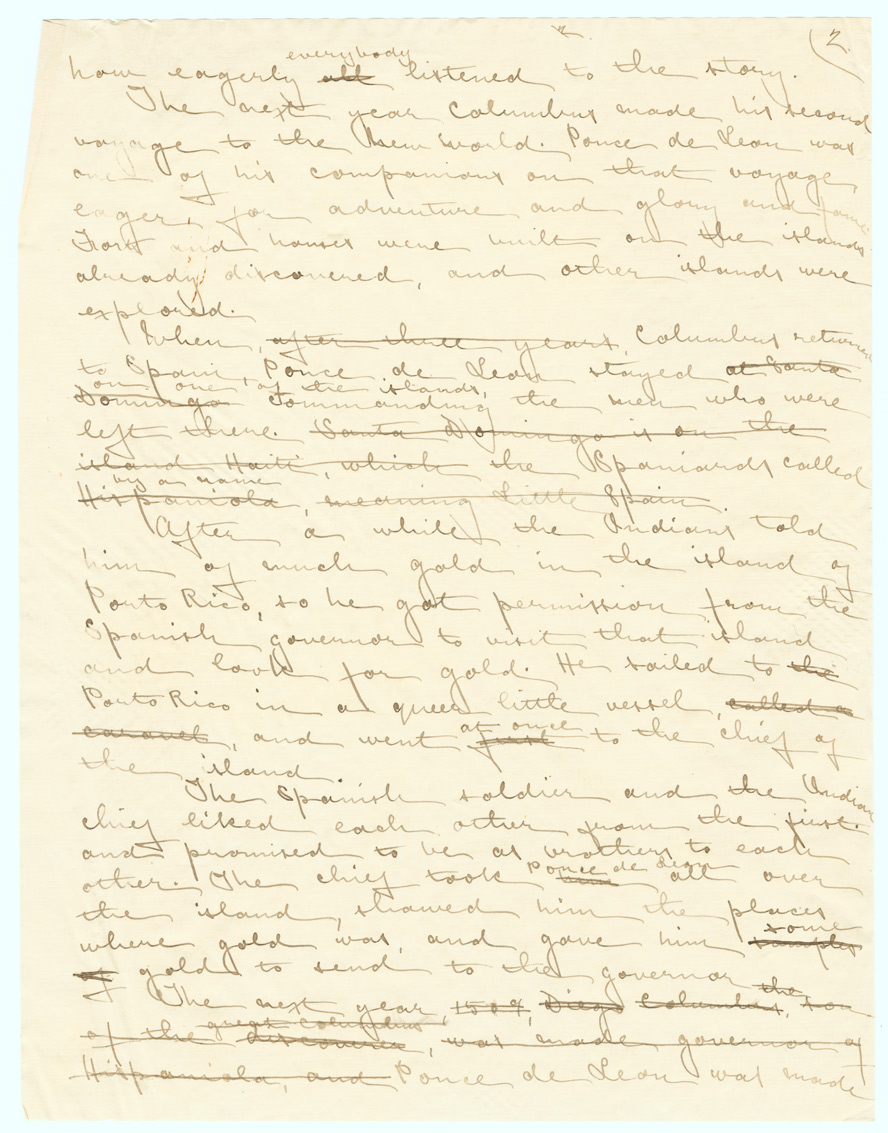 2.
everybody
how eagerly all listened to the story.
The next year Columbus made his second
voyage to the New World. Ponce de Leon was
one of his companions on that voyage,
eager, for adventure and glory and fame.
Forts and houses were built on the islands
already discovered, and other islands were
explored.
When, after three years, Columbus returned
to Spain, Ponce de Leon stayed at Santa
on one of the islands,
Domingo commanding the men who were
left there. Santa Domingo is on the
island Haiti, which the Spaniards called
by a name
Hispaniola, meaning Little Spain.
After a while the Indians told
him of much gold in the island of
Porto Rico, so he got permission from the
Spanish governor to visit that island
and look for gold. He sailed to the
Porto Rico in a queer little vessel, called a
caravel, and went
at once
first to the chief of
the island.
The Spanish soldier and the Indian
chief liked each other from the first.
and promised to be as brothers to each
Ponce de Leon
other. The chief took him all over
the island, showed him the places
some
where gold was, and gave him samples
of gold to send to the governor
the
The next year, 1509, Diego Columbus, son
great Columbus
of the discoverer, was made governor of
Hispaniola, and Ponce de Leon was made